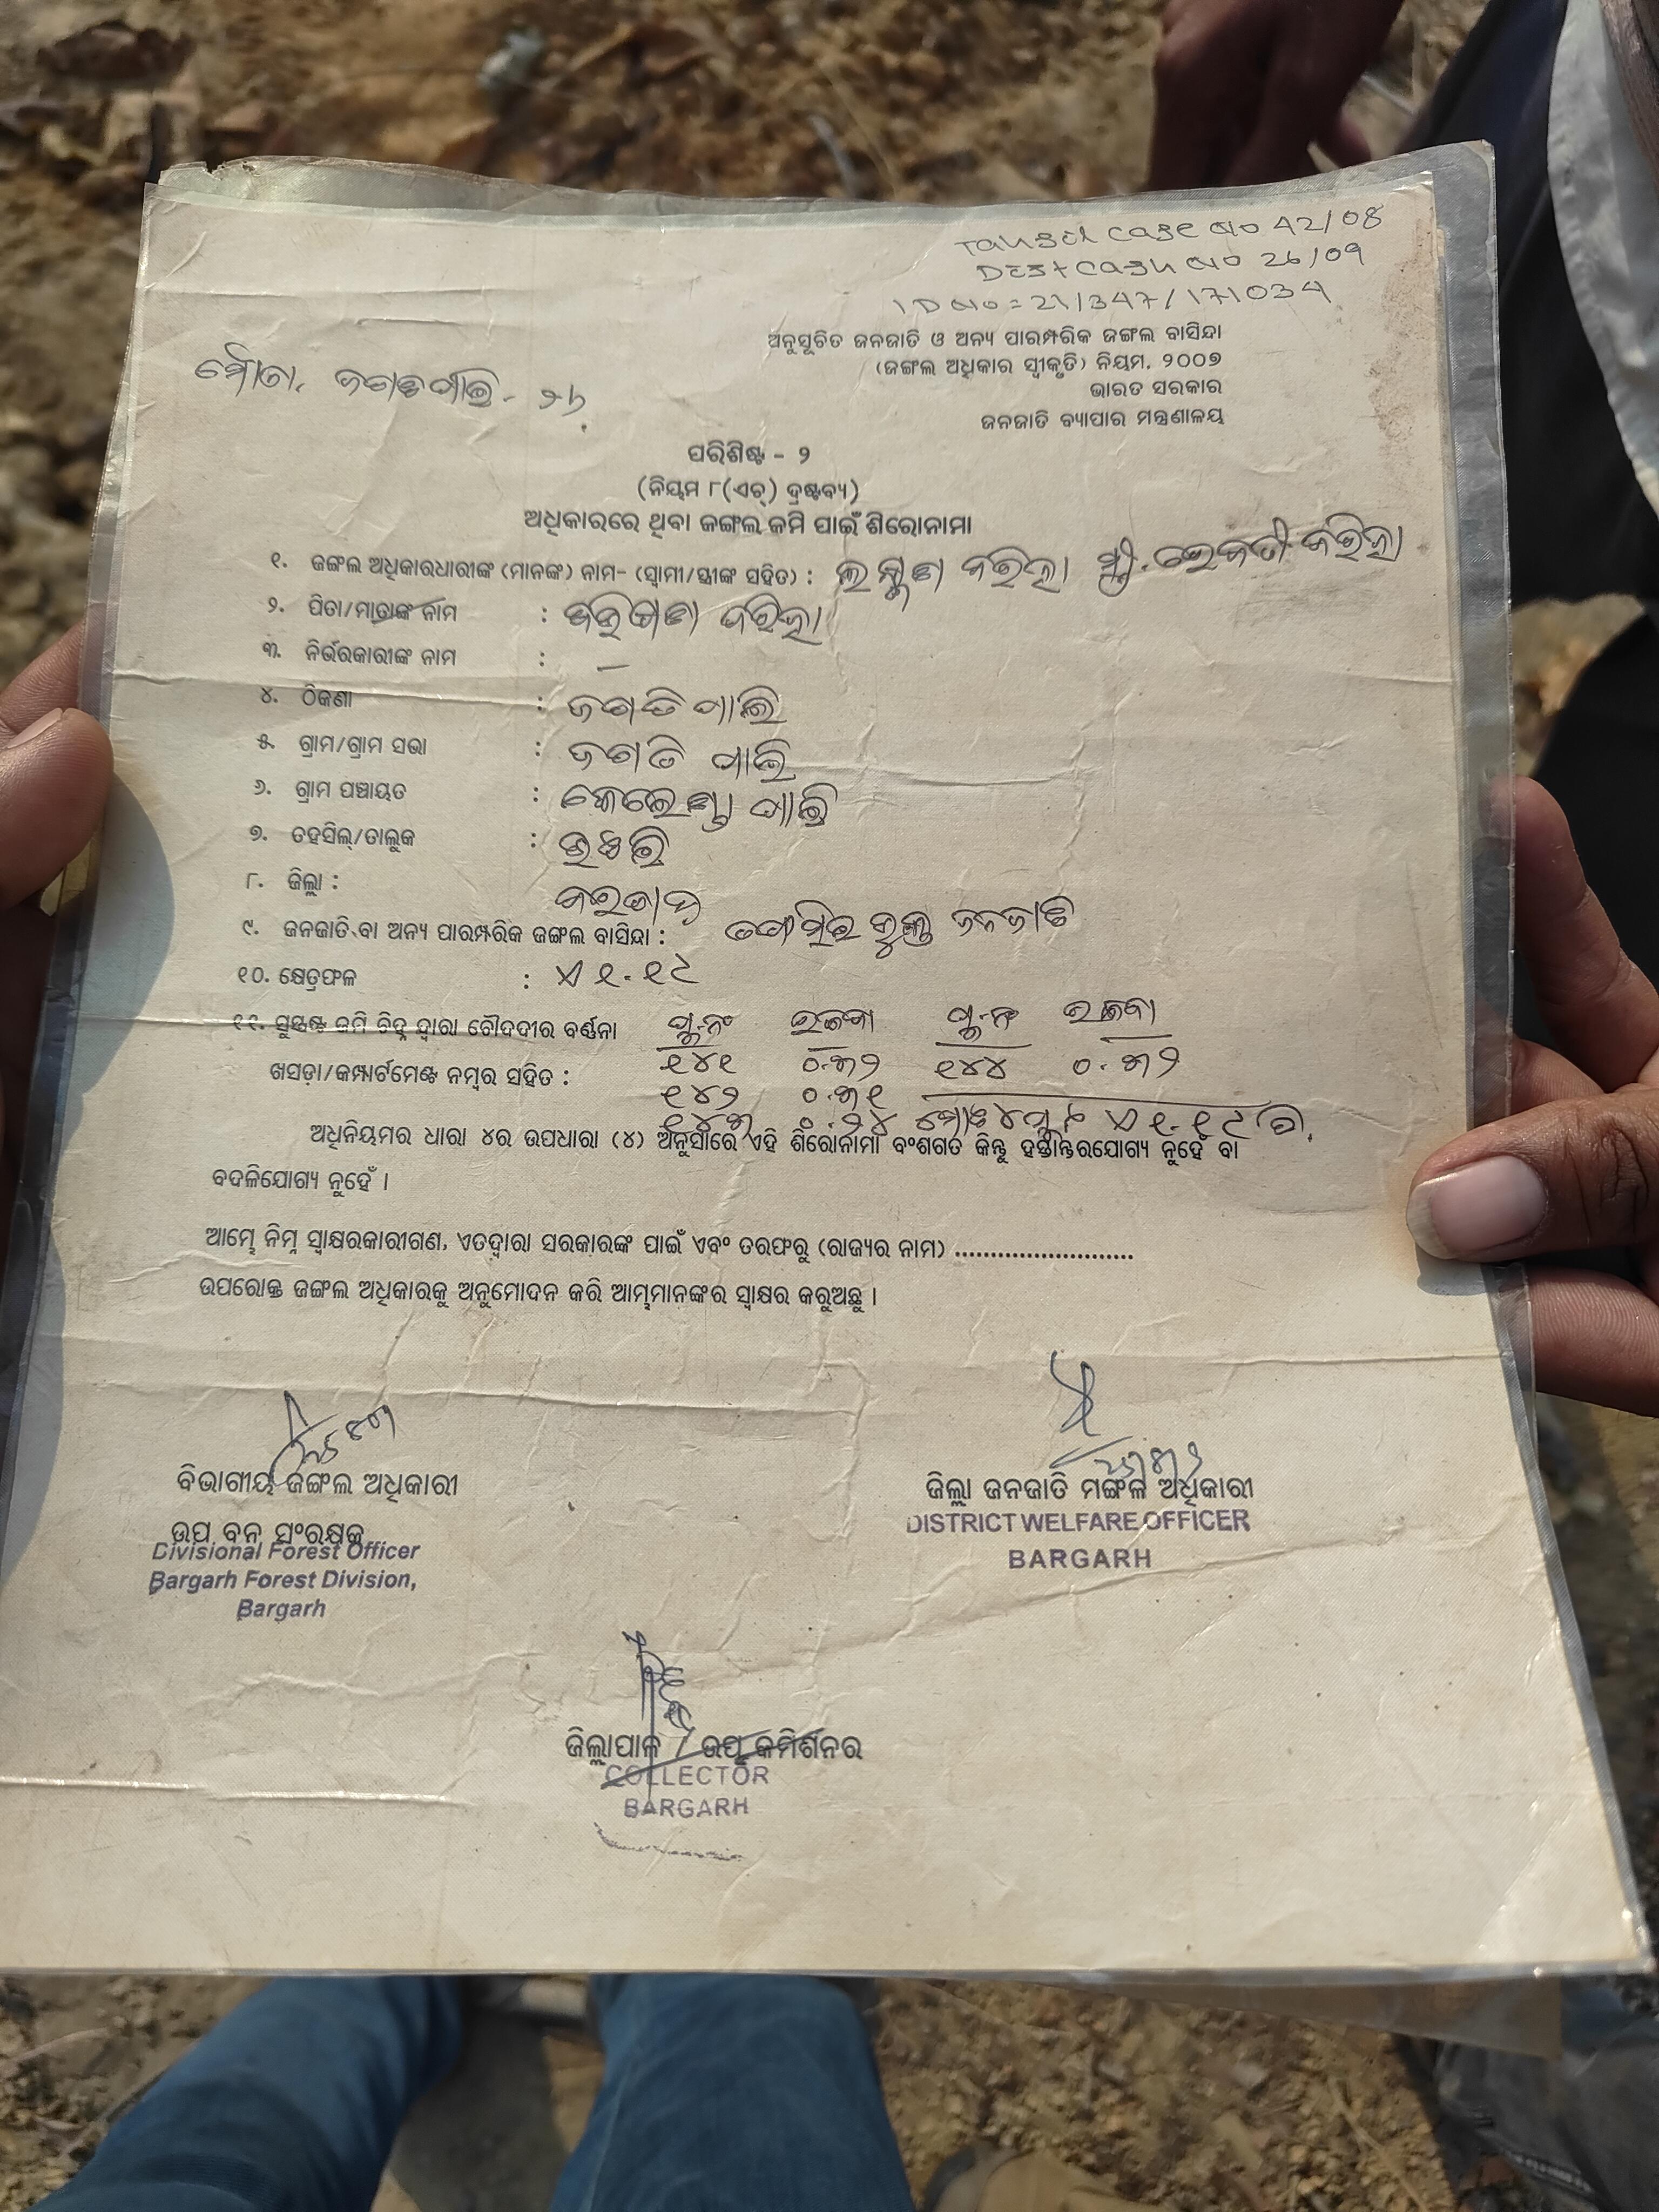 Tahsil Case No 42/08
Dist Case No 26/09
ID No = 21/347/171034
ଅନୁସୂଚିତ ଜନଜାତି ଓ ଅନ୍ୟ ପାରମ୍ପରିକ ଜଙ୍ଗଲ ବାସିନ୍ଦା
(ଜଙ୍ଗଲ ଅଧିକାର ସ୍ୱୀକୃତି) ନିୟମ, ୨୦୦୭
ଭାରତ ସରକାର
ଜନଜାତି ବ୍ୟାପାର ମନ୍ତ୍ରଣାଳୟ
ମୌଜା. ଜଗତିପାଲି - ୨୬
ପରିଶିଷ୍ଟ - ୨
(ନିୟମ ୮(ଏଚ୍) ଦ୍ରଷ୍ଟବ୍ୟ)
ଅଧିକାରରେ ଥିବା ଜଙ୍ଗଲ ଜମି ପାଇଁ ଶିରୋନାମା
୧. ଜଙ୍ଗଲ ଅଧିକାରଧାରୀଙ୍କ (ମାନଙ୍କ) ନାମ- (ସ୍ୱାମୀ/ସ୍ତ୍ରୀଙ୍କ ସହିତ) : ଲକ୍ଷ୍ମଣ କରିହା ସ୍ତ୍ରୀ.
୨. ପିତା/ମାତାଙ୍କ ନାମ : କରିହା
୩. ନିର୍ଭରକାରୀଙ୍କ ନାମ : —
୪. ଠିକଣା : ଜଗତି ପାଲି
୫. ଗ୍ରାମ/ଗ୍ରାମ ସଭା : ଜଗତି ପାଲି
୬. ଗ୍ରାମ ପଞ୍ଚାୟତ : ପାଲି
୭. ତହସିଲ୍/ତାଲୁକ :
୮. ଜିଲ୍ଲା : ବରଗଡ଼
୯. ଜନଜାତି ବା ଅନ୍ୟ ପାରମ୍ପରିକ ଜଙ୍ଗଲ ବାସିନ୍ଦା : ତପସିଲ ଭୁକ୍ତ ଜନଜାତି
୧୦. କ୍ଷେତ୍ରଫଳ : ଏ ୧.୧୯
୧୧. ସୁସ୍ପଷ୍ଟ ଜମି ଚିହ୍ନ ଦ୍ୱାରା ଚୌହଦୀର ବର୍ଣ୍ଣନା ପ୍ଲ.ନଂ ରକବା ପ୍ଲ.ନଂ ରକବା
ଖସଡ଼ା/କମ୍ପାର୍ଟମେଣ୍ଟ ନମ୍ବର ସହିତ : ୧୪୧ ୦.୩୨ ୧୪୪ ୦.୩୨
୧୪୨ ୦.୩୧
୧୪୩ ୦.୨୪ ମୋଟ ୪ ପ୍ଲଟ ଏ ୧.୧୯ ଡି.
ଅଧିନିୟମର ଧାରା ୪ର ଉପଧାରା (୪) ଅନୁସାରେ ଏହି ଶିରୋନାମା ବଂଶଗତ କିନ୍ତୁ ହସ୍ତାନ୍ତରଯୋଗ୍ୟ ନୁହେଁ ବା
ବଦଳିଯୋଗ୍ୟ ନୁହେଁ ।
ଆମ୍ଭେ ନିମ୍ନ ସ୍ୱାକ୍ଷରକାରୀଗଣ, ଏତଦ୍ୱାରା ସରକାରଙ୍କ ପାଇଁ ଏବଂ ତରଫରୁ (ରାଜ୍ୟର ନାମ) .........................
ଉପରୋକ୍ତ ଜଙ୍ଗଲ ଅଧିକାରକୁ ଅନୁମୋଦନ କରି ଆମ୍ଭମାନଙ୍କର ସ୍ୱାକ୍ଷର କରୁଅଛୁ ।
ବିଭାଗୀୟ ଜଙ୍ଗଲ ଅଧିକାରୀ
ଉପ ବନ ସଂରକ୍ଷକ
Divisional Forest Officer
Bargarh Forest Division,
Bargarh
ଜିଲ୍ଲା ଜନଜାତି ମଙ୍ଗଳ ଅଧିକାରୀ
DISTRICT WELFARE OFFICER
BARGARH
ଜିଲ୍ଲାପାଳ / ଉପ କମିଶନର
COLLECTOR
BARGARH